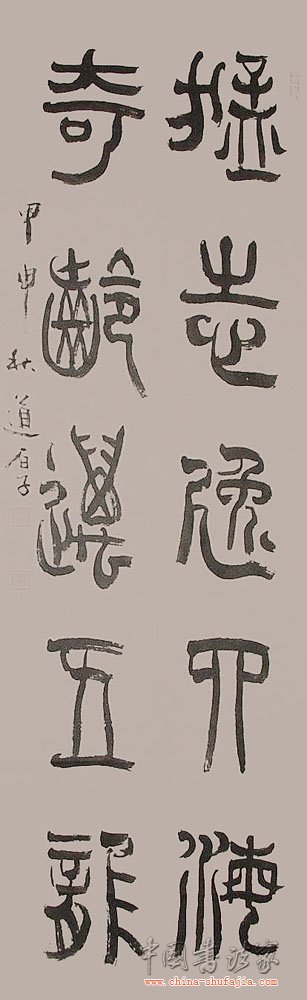 猛志逸四海
奇齡邁五龍
甲申秋道石子
中國書法家
http://www.china-shufajia.com